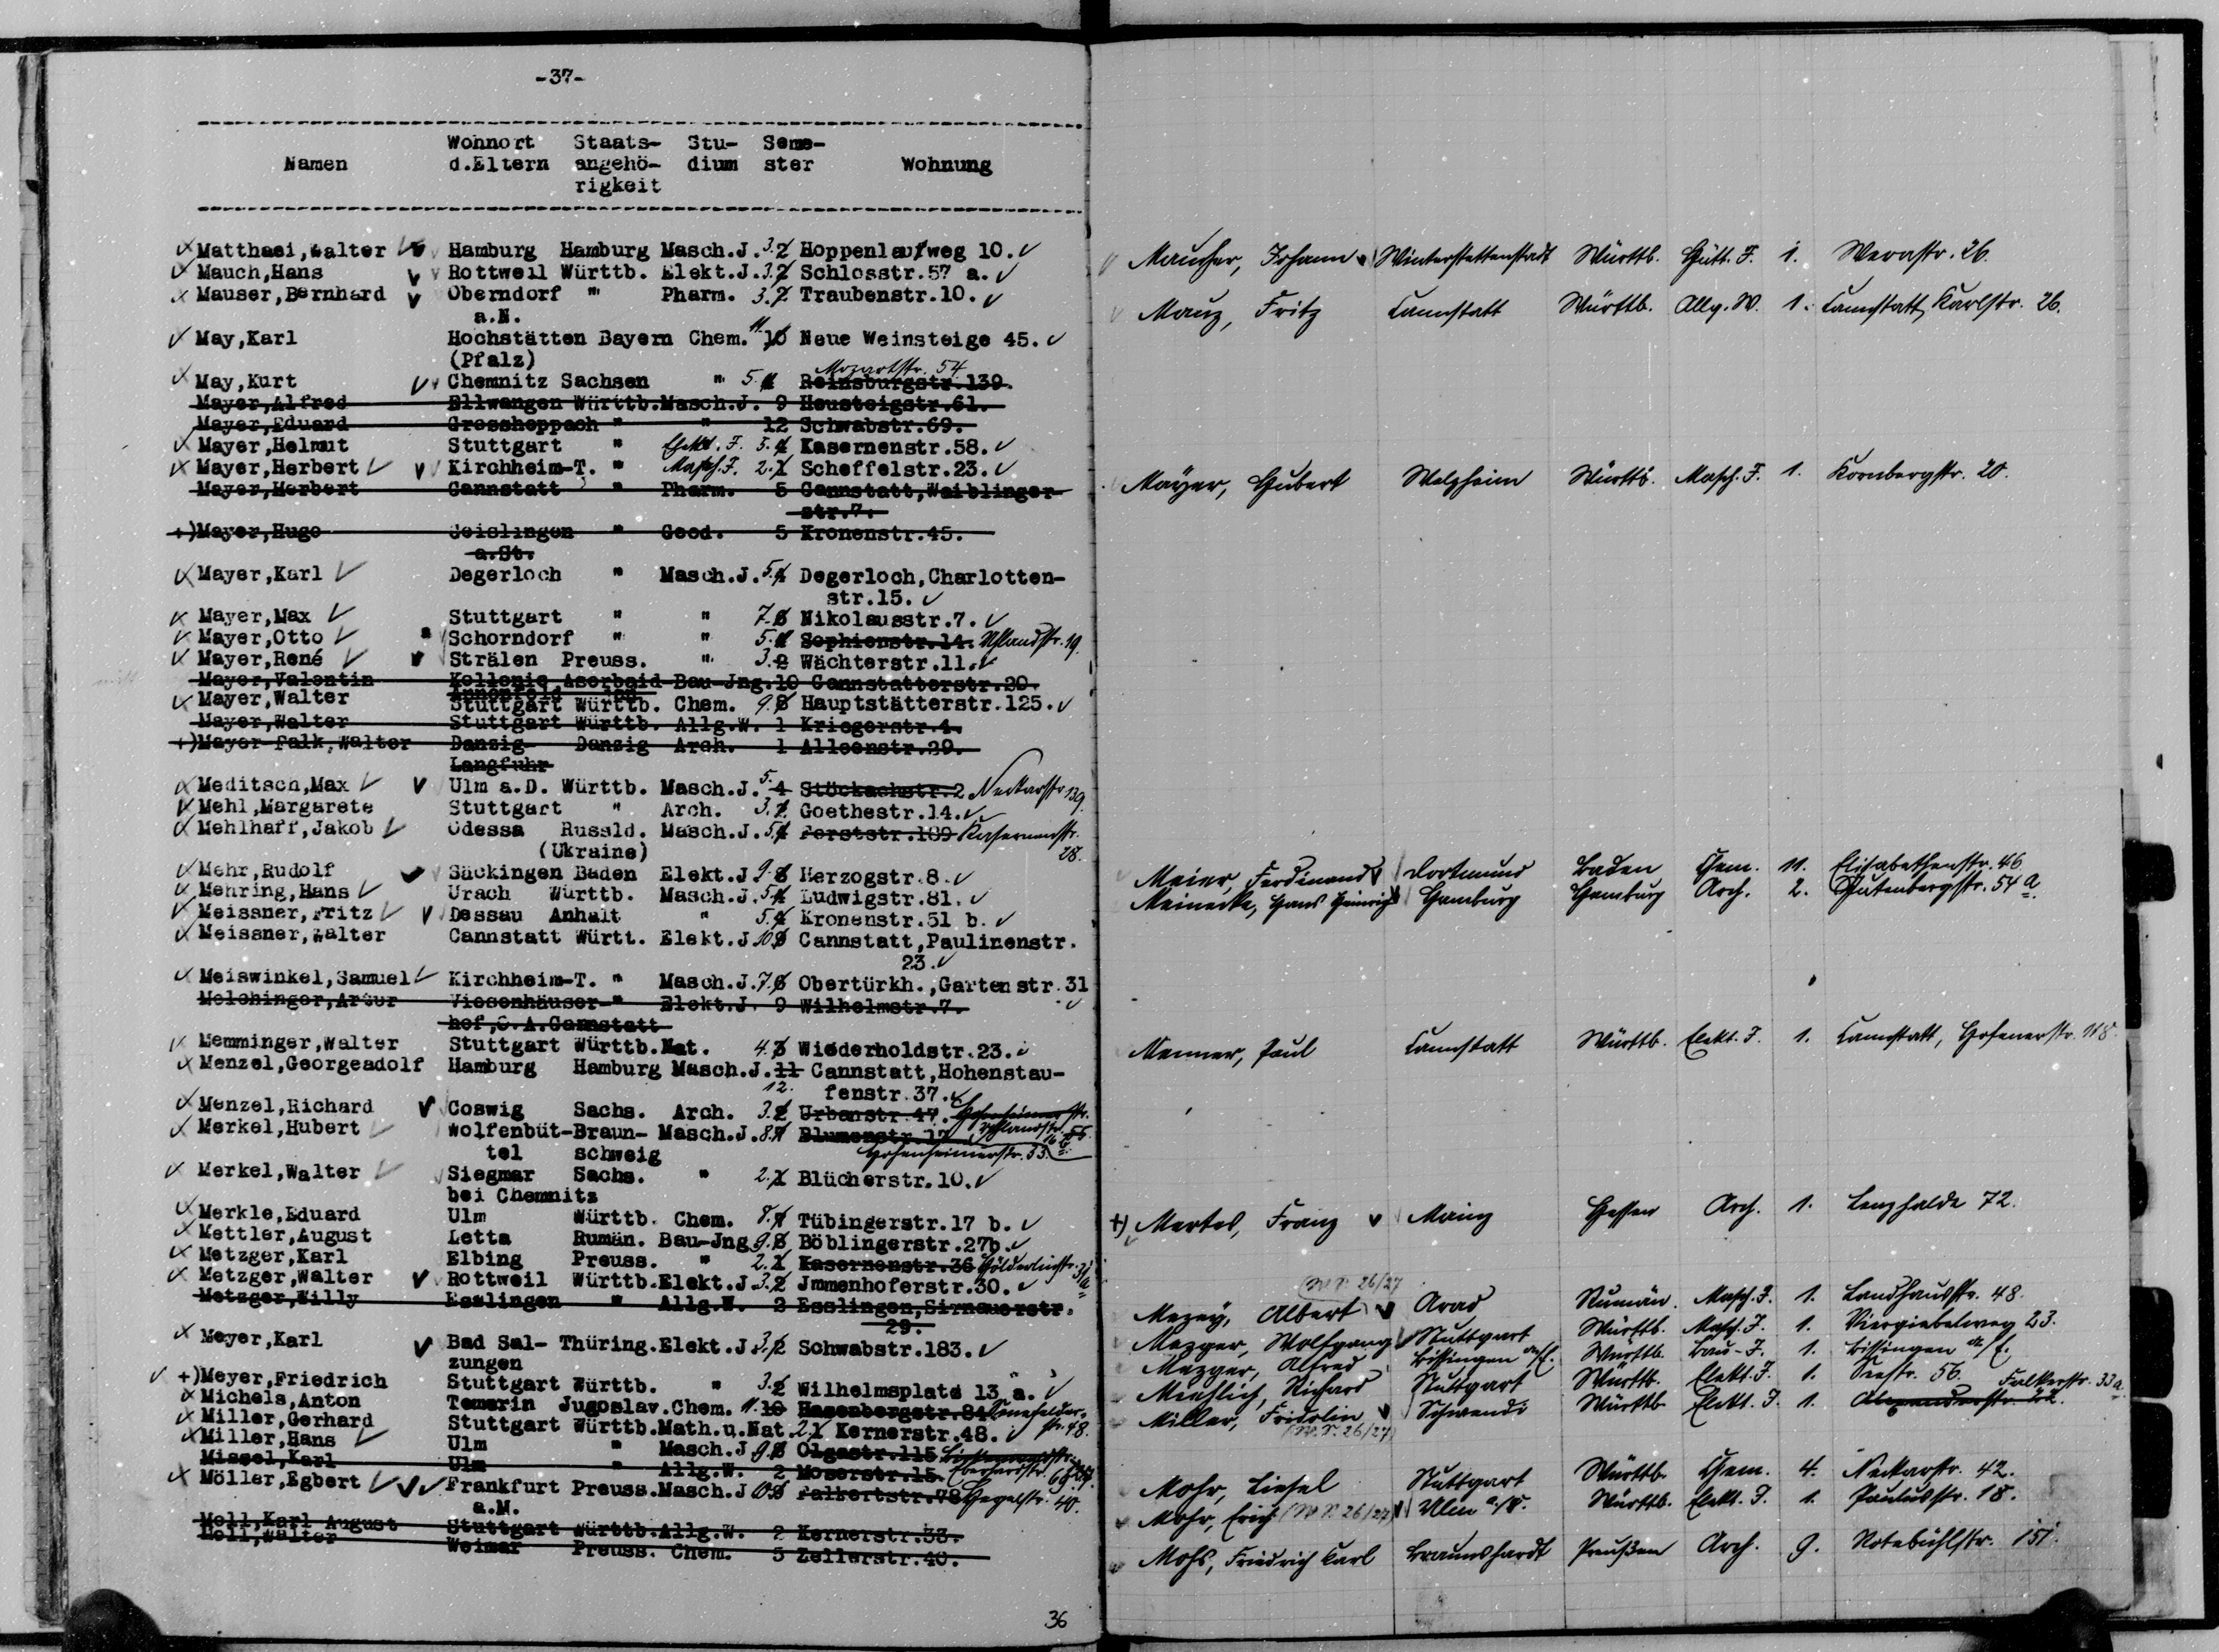 -37-
Namen Wohnort d.Eltern Staats- angehö- rigkeit Stu- dium Seme- ster Wohnung
Matthaei,Walter Hamburg Hamburg Masch.J. 3. 2 Hoppenlaufweg 10.
Mauch,Hans Rottweil Württb. Elekt.J. 3. 2 Schlosstr.57 a.
Mauser,Bernhard Oberndorf " Pharm. 3. 2 Traubenstr.10.
a.N.
May,Karl Hochstätten Bayern Chem. 11. 10 Neue Weinsteige 45.
(Pfalz)
Mozartstr. 54.
May,Kurt Chemnitz Sachsen " 5. 4 Reinsburgstr.139.
Mayer,Alfred Ellwangen Württb.Masch.J. 9 Heusteigstr.61.
Mayer,Eduard Grossheppach " " 12 Schwabstr.69.
Mayer,Helmut Stuttgart " Elekt. J. 5. 4 Kasernenstr.58.
Mayer,Herbert Kirchheim-T. " Masch.J. 2. 1 Scheffelstr.23.
Mayer,Herbert Cannstatt " Pharm. 5 Cannstatt,Waiblinger-
str.7.
+)Mayer,Hugo Geislingen " Geod. 5 Kronenstr.45.
a.St.
Mayer,Karl Degerloch " Masch.J. 5. 4 Degerloch,Charlotten-
str.15.
Mayer,Max Stuttgart " " 7. 6 Nikolausstr.7.
Mayer,Otto Schorndorf " " 5. 4 Sophienstr.14. Uhlandstr. 19.
Mayer,René Strälen Preuss. " 3. 2 Wächterstr.11.
Mayer,Valentin Kellenie Aserbeid Bau-Jng.10 Cannstatterstr.20.
Annenfeld
Mayer,Walter Stuttgart Württb. Chem. 9. 8 Hauptstätterstr.125.
Mayer,Walter Stuttgart Württb. Allg.W. 1 Kriegerstr.4.
+)Mayer-Falk,Walter Danzig- Danzig Arch. 1 Alleenstr.29.
Langfuhr
Meditsch,Max Ulm a.D. Württb. Masch.J. 5. 4 Stöckachstr.2 Neckarstr. 139.
Mehl,Margarete Stuttgart " Arch. 3. 2 Goethestr.14.
Mehlhaff,Jakob Odessa Russld. Masch.J. 5. 4 Forststr.189 Kasernenstr.
(Ukraine) 28.
Mehr,Rudolf Säckingen Baden Elekt.J 9. 8 Herzogstr.8.
Mehring,Hans Urach Württb. Masch.J. 5. 4 Ludwigstr.81.
Meissner,Fritz Dessau Anhalt " 5. 4 Kronenstr.51 b.
Meissner,Walter Cannstatt Württ. Elekt.J 10. 9 Cannstatt,Paulinenstr.
23.
Meiswinkel,Samuel Kirchheim-T. " Masch.J. 7. 6 Obertürkh.,Gartenstr.31
Melchinger,Artur Viesenhäuser-" Elekt.J. 9 Wilhelmstr.7.
hof,O.A.Cannstatt
Memminger,Walter Stuttgart Württb.Nat. 4. 3 Wiederholdstr.23.
Menzel,Georgeadolf Hamburg Hamburg Masch.J. 11 Cannstatt,Hohenstau-
12. fenstr.37.
Menzel,Richard Coswig Sachs. Arch. 3. 2 Urbanstr.47. Hohenheimerstr.
Merkel,Hubert Wolfenbüt-Braun- Masch.J. 8. 7 Blumenstr.17 Uhlandstr.
tel schweig Hohenheimerstr. 33.
Merkel,Walter Siegmar Sachs. " 2. 1 Blücherstr.10.
bei Chemnitz
Merkle,Eduard Ulm Württb. Chem. 8. 7 Tübingerstr.17 b.
Mettler,August Letta Rumän. Bau-Jng 9. 8 Böblingerstr.27b.
Metzger,Karl Elbing Preuss. " 2. 1 Kasernenstr.36 Hölderlinstr.
Metzger,Walter Rottweil Württb.Elekt.J 3. 2 Jmmenhoferstr.30.
Metzger,Willy Esslingen " Allg.W. 2 Esslingen,Sirnauerstr.
29.
Meyer,Karl Bad Sal- Thüring.Elekt.J 3. 2 Schwabstr.183.
zungen
+)Meyer,Friedrich Stuttgart Württb. " 3. 2 Wilhelmsplatz 13 a.
Michels,Anton Temerin Jugoslav.Chem. 11. 10 Hasenbergstr.84 Senefelder-
str. 48.
Miller,Gerhard Stuttgart Württb.Math.u.Nat. 2. 1 Kernerstr.48.
Miller,Hans Ulm " Masch.J 9. 8 Olgastr.115
Missel,Karl Ulm " Allg.W. 2 Moserstr.15. Eberhardstr.
Möller,Egbert Frankfurt Preuss.Masch.J 10. 9 Falkertstr.78 Hegelstr. 40.
a.M.
Moll,Karl August Stuttgart Württb.Allg.W. 2 Kernerstr.33.
Moll,Walter Weimar Preuss. Chem. 5 Zellerstr.40.
36
Maucher, Johann Winterstettenstadt Württb. Hütt. J. 1. Werastr. 26.
Mauz, Fritz Cannstatt Württb. Allg. W. 1. Cannstatt, Karlstr. 26.
Mayer, Hubert Welzheim Württb. Masch. J. 1. Kornbergstr. 20.
Meier, Ferdinand Dortmund Baden Chem. 11. Elisabethenstr. 46
Meinecke, Hans Heinrich Hamburg Hamburg Arch. 2. Gutenbergstr. 54 a.
Menner, Paul Cannstatt Württb. Elekt. J. 1. Cannstatt, Hofenerstr. 118.
+) Mertes, Franz Mainz Hessen Arch. 1. Lenzhalde 72.
(W.S. 26/27
Mezey, Albert Arad Rumän. Masch. J. 1. Landhausstr. 48.
Mezger, Wolfgang Stuttgart Württb. Masch. J. 1. Viergiebelweg 23.
Mezger, Alfred Bissingen a/E. Württb. Bau-J. 1. Bissingen a/E.
Michlich, Richard Stuttgart Württb. Elekt. J. 1. Seestr. 56. Falkertstr. 33a
Miller, Fridolin Schwendi Württb. Elekt. J. 1. Alexanderstr. 22.
(W.S. 26/27)
Mohr, Liesel Stuttgart Württb. Chem. 4. Neckarstr. 42.
Mohr, Erich (W.S. 26/27) Ulm a/D. Württb. Elekt. J. 1. Paulusstr. 18.
Mohs, Friedrich Carl Braunshardt Preußen Arch. 9. Rotebühlstr. 151.